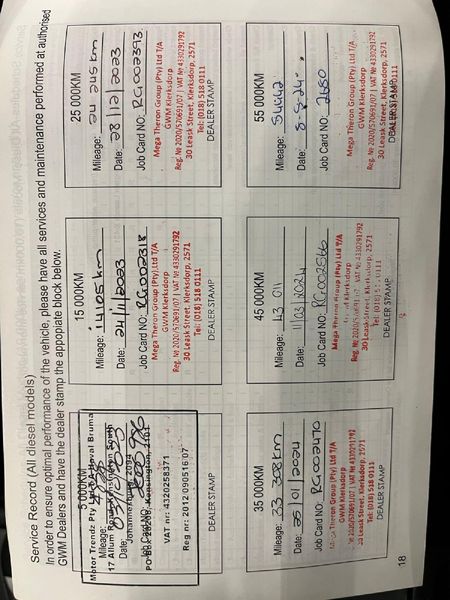 Service Record (All diesel models)
In order to ensure optimal performance of the vehicle, please have all services and maintenance performed at authorised
GWM Dealers and have the dealer stamp the appopiate block below.
5 000KM
Motor Trendz Pty Ltd Haval Bruma
Mileage:
17 Allum Road Kensington South
Date:
Johannesburg 2094
Job Card NO:
PO Box Kensington, 2101
VAT nr: 4320258371
Reg nr: 2012/090516/07
DEALER STAMP
15 000KM
Mileage: 14105km
Date: 24/11/2023
Job Card NO: RG002318
Mega Theron Group (Pty) Ltd T/A
GWM Klerksdorp
Reg. № 2020/570691/07 | VAT № 4330291792
30 Leask Street, Klerksdorp, 2571
Tel: (018) 518 0111
DEALER STAMP
25 000KM
Mileage: 24 245km
Date: 08/12/2023
Job Card NO: RG002393
Mega Theron Group (Pty) Ltd T/A
GWM Klerksdorp
Reg. № 2020/570691/07 | VAT № 4330291792
30 Leask Street, Klerksdorp, 2571
Tel: (018) 518 0111
DEALER STAMP
35 000KM
Mileage: 33 308km
Date: 25/01/2024
Job Card NO: RG002470
Mega Theron Group (Pty) Ltd T/A
GWM Klerksdorp
№ 2020/570691/07 | VAT № 4330291792
30 Leask Street, Klerksdorp, 2571
Tel: (018) 518 0111
DEALER STAMP
45 000KM
Mileage: 43 011
Date: 11/03/2024
Job Card NO: RG002566
Mega Theron Group (Pty) Ltd T/A
GWM Klerksdorp
Reg. № 2020/570691/07 | VAT № 4330291792
30 Leask Street, Klerksdorp, 2571
Tel: (018) 518 0111
DEALER STAMP
55 000KM
Mileage:
Date: 8-5-24
Job Card NO: 2680
Mega Theron Group (Pty) Ltd T/A
GWM Klerksdorp
Reg. № 2020/570691/07 | VAT № 4330291792
30 Leask Street, Klerksdorp, 2571
Tel: (018) 518 0111
DEALER STAMP
18